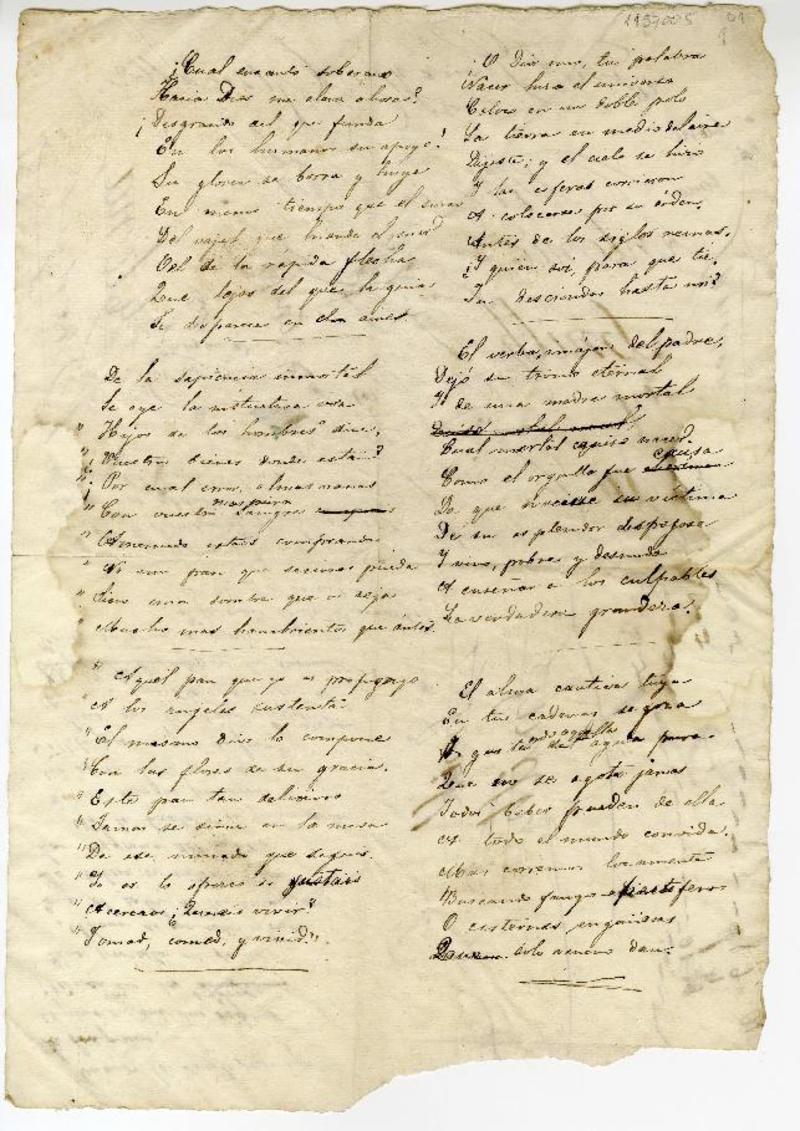 1137005 01
¡Cual encanto soberano
Hacia Dios me eleva ahora?
¡Desgraciado del que funda
En los humanos su apoyo!
Su gloria se borra y huye
En menos tiempo que el surco
Del bajel que hiende el mar
O el de la rápida flecha
Que lejos del que la guia
Se desparece en los aires
De la sapiencia inmortal
Se oye la voz
" Hijos de los hombres dice,
" ¿Vuestros bienes donde están?
" ¿Por cual error, almas vanas
" Con vuestra mas pura sangre
" A menudo estais comprando
" No un pan que saciaros pueda
" Sino una sombra que os deja
" Mucho mas hambrientos que ántes.
" Aquel pan que yo os propongo
" A los angeles sustenta
" El mismo dios lo compone
" Con las flores de su gracia.
" Este pan tan delicioso
" Jamas se sirve en la mesa
" De ese mundo que seguis.
" Yo os lo ofrezco si gustais
" Acercaos ¿Quereis vivir?
" Tomad, comed, y vivid".
O Dios mio, tu palabra
Nacer hizo el universo
Colocó en un doble polo
La tierra en medio del aire
Dijiste; y el cielo se hizo
I las esferas corrieron
A colocarse por su órden.
Antes de los siglos reinas,
¿I quien soi, para que tú
desciendas hasta mi?
El verbo, imájen del padre,
Dejó su trono eternal
I de una madre mortal
Cual mortal quiso nacer.
Como el orgullo fue causa
De que naciese su victima
De su esplendor despojose
I vino, pobre y desnudo
A enseñar a los culpables
La verdadera grandeza.
El alma cautiva tuya
En tus cadenas se goza
de agua pura
Que no se agota jamas
Todos beber pueden de ella
A todo el mundo convida.
Mas corremos locamente
Buscando fangos
O cisternas engañosas
Que solo veneno dan.